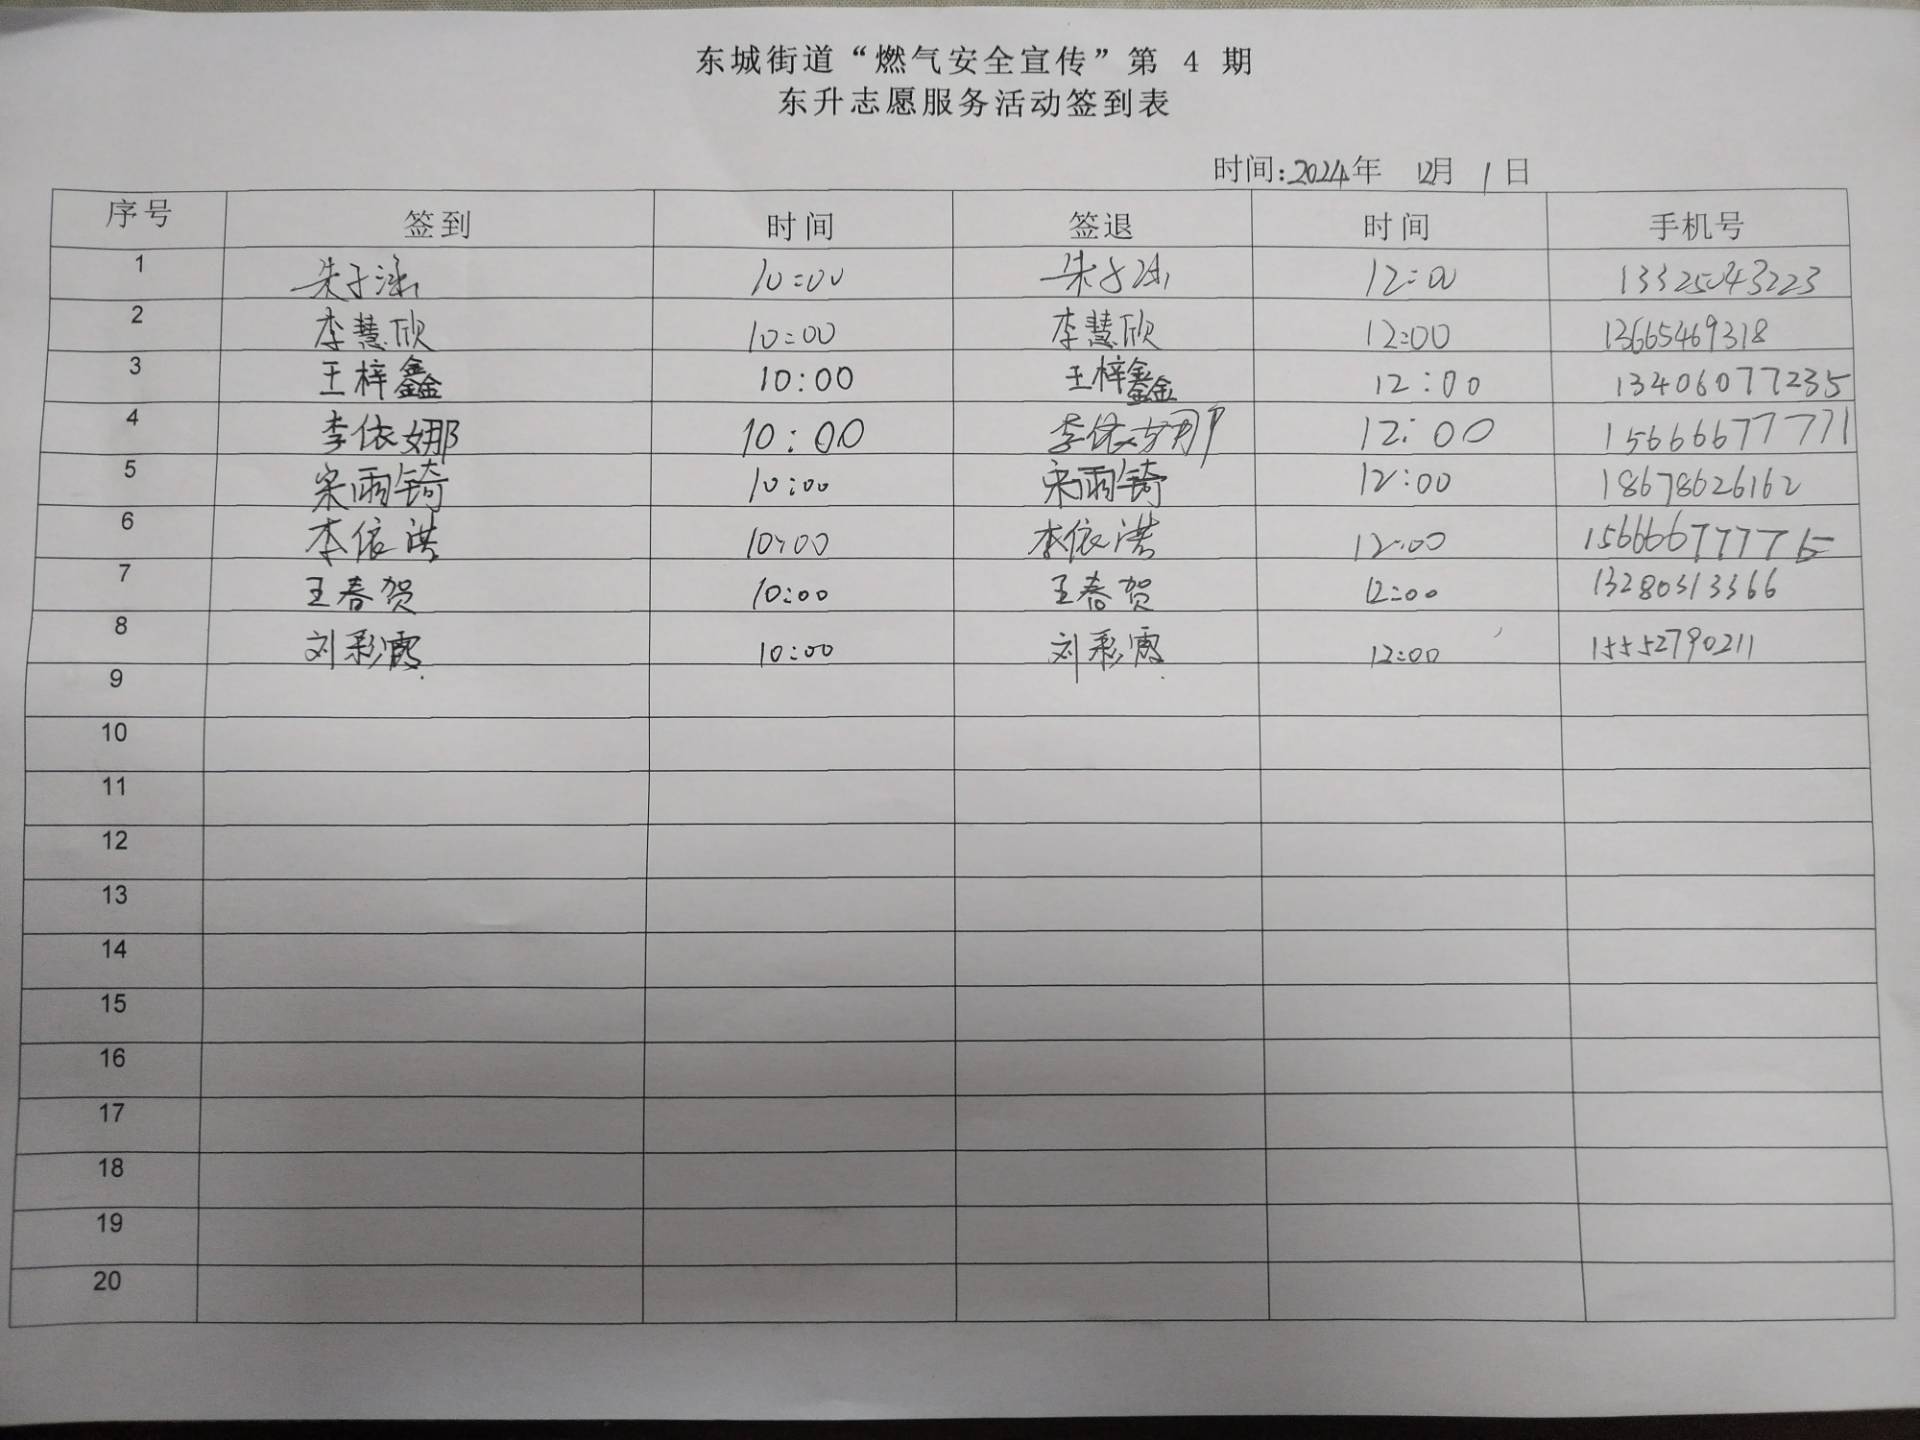 东城街道“燃气安全宣传”第 4 期
东升志愿服务活动签到表
时间:2024年 12月 1日
序号 签到 时间 签退 时间 手机号
1 朱子涵 10:00 朱子涵 12:00 13325043223
2 李慧欣 10:00 李慧欣 12:00 13665469318
3 王梓鑫 10:00 王梓鑫 12:00 13406077235
4 李依娜 10:00 李依娜 12:00 15666677771
5 宋雨锜 10:00 宋雨锜 12:00 18678626162
6 李依諾 10:00 李依諾 12:00
7 王春贺 10:00 王春贺 12:00 13280313366
8 刘彩霞 10:00 刘彩霞 12:00 15552790211
9
10
11
12
13
14
15
16
17
18
19
20